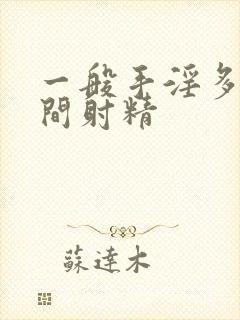 一般手淫多
間射精
蘇達木